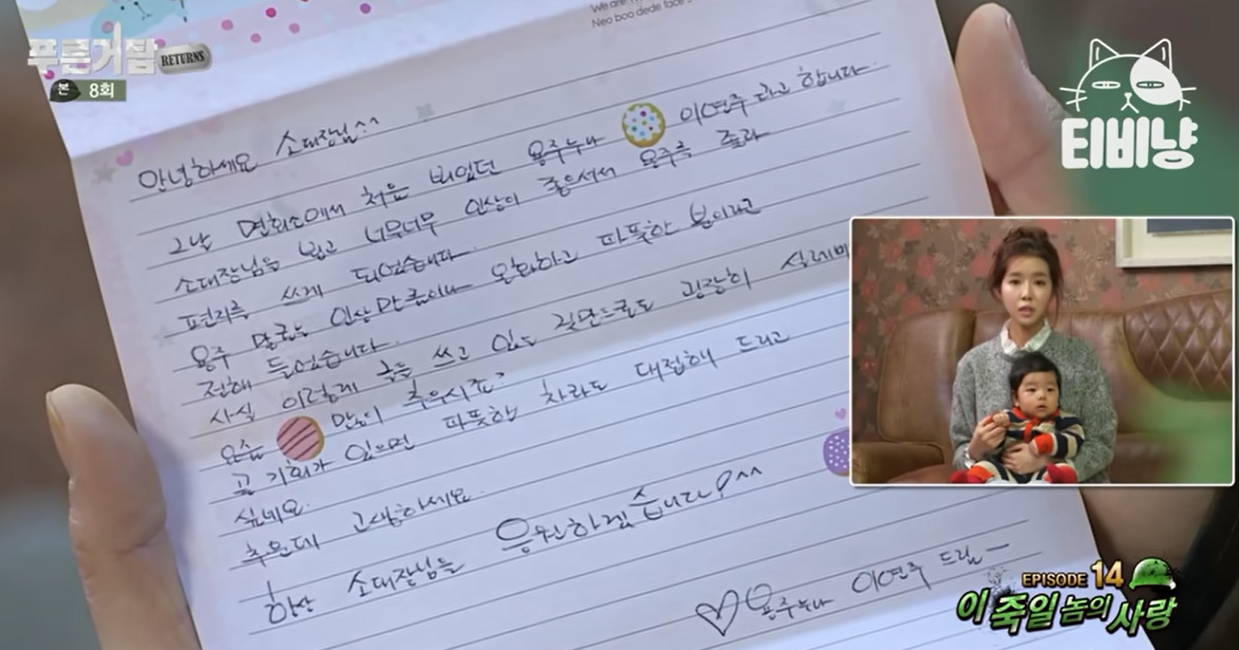 We are
Neo boo dede face
푸른거탑 RETURNS
본 8회
티비냥
안녕하세요 소대장님^^
그날 면회소에서 처음 뵈었던 용주누나 이연주라고 합니다.
소대장님을 뵙고 너무너무 인상이 좋으셔서 용주를 졸라
편지를 쓰게 되었습니다.
용주 말로는 인상만큼이나 온화하고 따뜻한 분이라고
전해 들었습니다.
사실 이렇게 글을 쓰고 있는 굉장히
요즘 많이 추우시죠?
꼭 기회가 있으면 따뜻한 차라도 대접해 드리고
싶네요.
추운데 고생하세요.
항상 소대장님을 응원하겠습니다!^^
♡용주누나 이연주 드림-
EPISODE 14
이 죽일 놈의 사랑